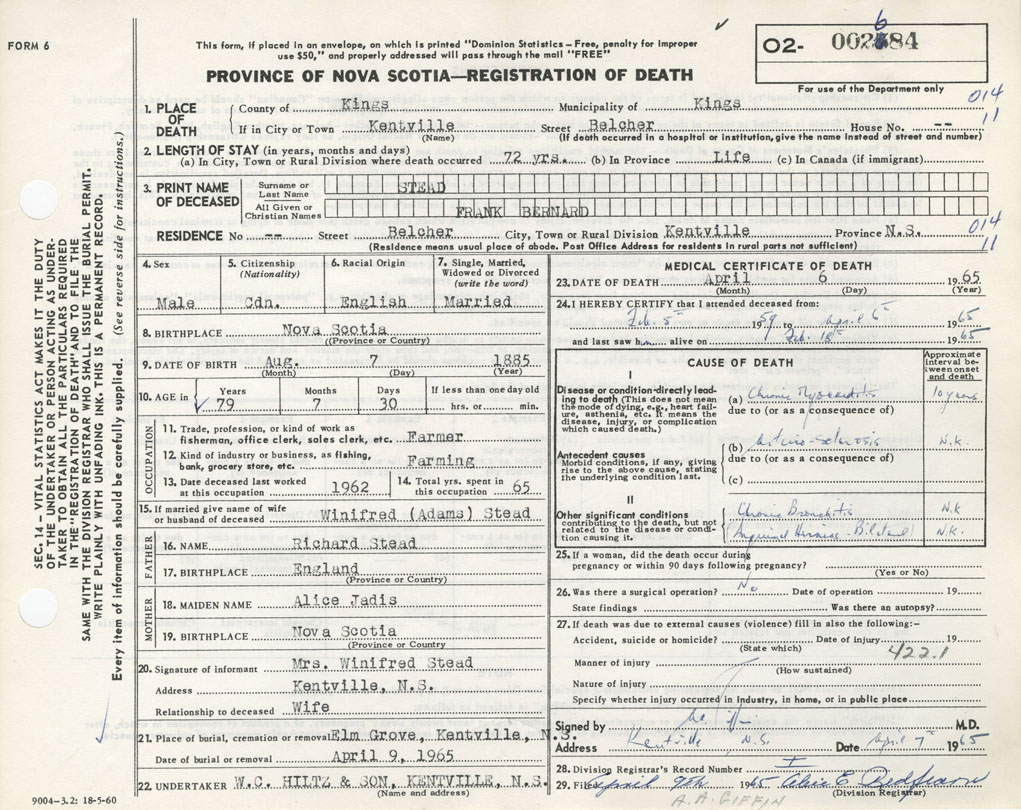 FORM 6
This form, if placed in an envelope, on which is printed "Dominion Statistics – Free, penalty for improper
use $50," and properly addressed will pass through the mail "FREE"
PROVINCE OF NOVA SCOTIA—REGISTRATION OF DEATH
O2- 002684
For use of the Department only
014
11
1. PLACE OF DEATH
County of Kings Municipality of Kings
If in City or Town Kentville Street Belcher House No. --
(Name) (If death occurred in a hospital or institution, give the name instead of street and number)
2. LENGTH OF STAY (in years, months and days)
(a) In City, Town or Rural Division where death occurred 72 yrs. (b) In Province Life (c) In Canada (if immigrant)
3. PRINT NAME OF DECEASED
Surname or Last Name STEAD
All Given or Christian Names FRANK BERNARD
RESIDENCE No -- Street Belcher City, Town or Rural Division Kentville Province N.S.
(Residence means usual place of abode. Post Office Address for residents in rural parts not sufficient)
014
11
4. Sex
Male
5. Citizenship
(Nationality)
Cdn.
6. Racial Origin
English
7. Single, Married,
Widowed or Divorced
(write the word)
Married
8. BIRTHPLACE Nova Scotia
((Province or Country)
9. DATE OF BIRTH Aug. 7 1885
(Month) (Day) (Year)
10. AGE in
Years 79
Months 7
Days 30
If less than one day old
hrs. or min.
OCCUPATION
11. Trade, profession, or kind of work as
fisherman, office clerk, sales clerk, etc. Farmer
12. Kind of industry or business, as fishing,
bank, grocery store, etc. Farming
13. Date deceased last worked
at this occupation 1962
14. Total yrs. spent in
this occupation 65
15. If married give name of wife
or husband of deceased Winifred (Adams) Stead
FATHER
16. NAME Richard Stead
17. BIRTHPLACE England
(Province or Country)
MOTHER
18. MAIDEN NAME Alice Jadis
19. BIRTHPLACE Nova Scotia
(Province or Country
20. Signature of informant Mrs. Winifred Stead
Address Kentville, N.S.
Relationship to deceased Wife
21. Place of burial, cremation or removal Elm Grove, Kentville, N.S.
Date of burial or removal April 9, 1965
22. UNDERTAKER W.C. HILTZ & SON, KENTVILLE, N.S.
(Name and address)
MEDICAL CERTIFICATE OF DEATH
23. DATE OF DEATH April 6 1965
(Month) (Day) (Year)
24. I HEREBY CERTIFY that I attended deceased from:
Feb. 5th 1959 to April 6th 1965
and last saw h alive on Feb. 18th 1965
CAUSE OF DEATH
Approximate
interval be-
tween onset
and death
I
Disease or condition directly lead-
ing to death (This does not mean
the mode of dying, e.g., heart fail-
ure, asthenia, etc. It means the
disease, injury, or complication
which caused death.)
(a) Chronic Myocarditis 10 years
due to (or as a consequence of)
(b) Arterio-sclerosis N.K.
due to (or as a consequence of)
Antecedent causes
Morbid conditions, if any, giving
rise to the above cause, stating
the underlying condition last.
(c)
II
Other significant conditions
contributing to the death, but not
related to the disease or condi-
tion causing it.
Chronic Bronchitis N.K
Inguinal Hernias - Bilateral N.K.
25. If a woman, did the death occur during
pregnancy or within 90 days following pregnancy?
(Yes or No)
26. Was there a surgical operation? No Date of operation 19
State findings Was there an autopsy?
27. If death was due to external causes (violence) fill in also the following:–
Accident, suicide or homicide? Date of injury 19
(State which)
422.1
Manner of injury
(How sustained)
Nature of injury
Specify whether injury occurred in industry, in home, or in public place
Signed by M.D.
Address Kentville N.S. Date April 7th 1965
28. Division Registrar's Record Number
29. Filed April 9th 1965 Alice E. Redfearn
(Division Registrar)
A.A. GIFFIN
SEC. 14 – VITAL STATISTICS ACT MAKES IT THE DUTY
OF THE UNDERTAKER OR PERSON ACTING AS UNDER-
TAKER TO OBTAIN ALL THE PARTICULARS REQUIRED
IN THE "REGISTRATION OF DEATH" AND TO FILE THE
SAME WITH THE DIVISION REGISTRAR WHO SHALL ISSUE THE BURIAL PERMIT.
WRITE PLAINLY WITH UNFADING INK. THIS IS A PERMANENT RECORD.
Every item of information should be carefully supplied. (See reverse side for instructions.)
9004-3.2: 18-5-60